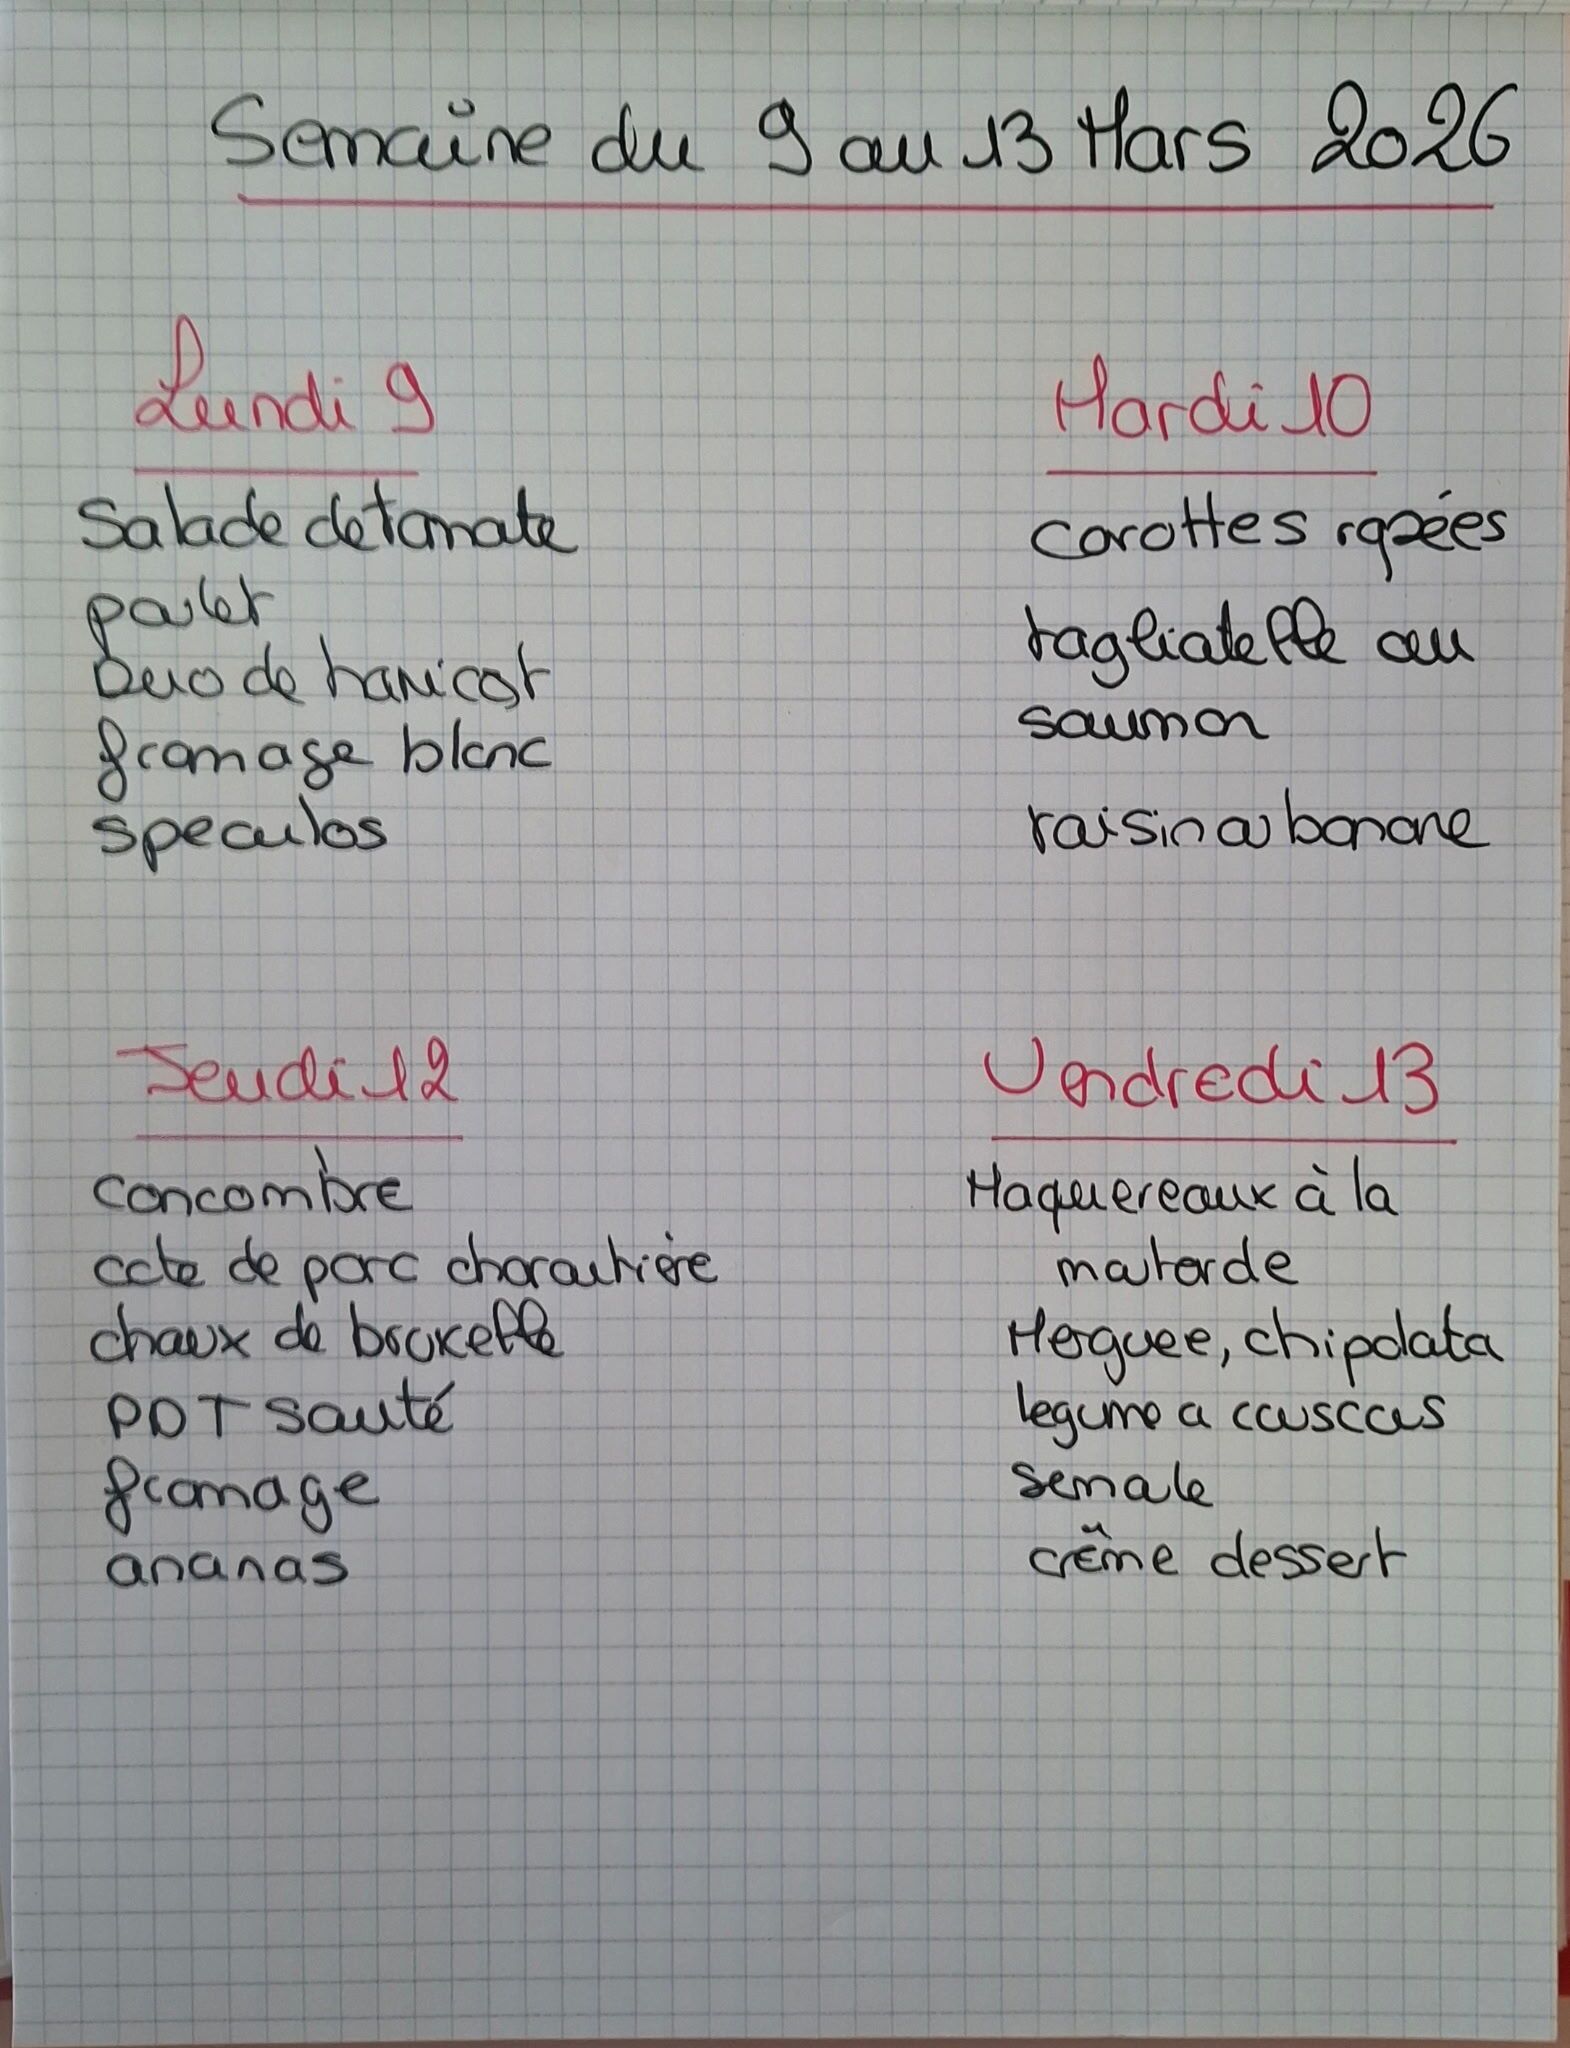 Semaine du 9 au 13 Mars 2026
Lundi 9
Salade de tomate
poulet
Duo de haricot
fromage blanc
speculos
Mardi 10
carottes rapées
tagliatelle au
saumon
raisin ou banane
Jeudi 12
concombre
cote de porc charcutière
choux de bruxelle
PDT sauté
fromage
ananas
Vendredi 13
Maquereaux à la
moutarde
Merguee, chipolata
legume a couscous
semoule
crème dessert